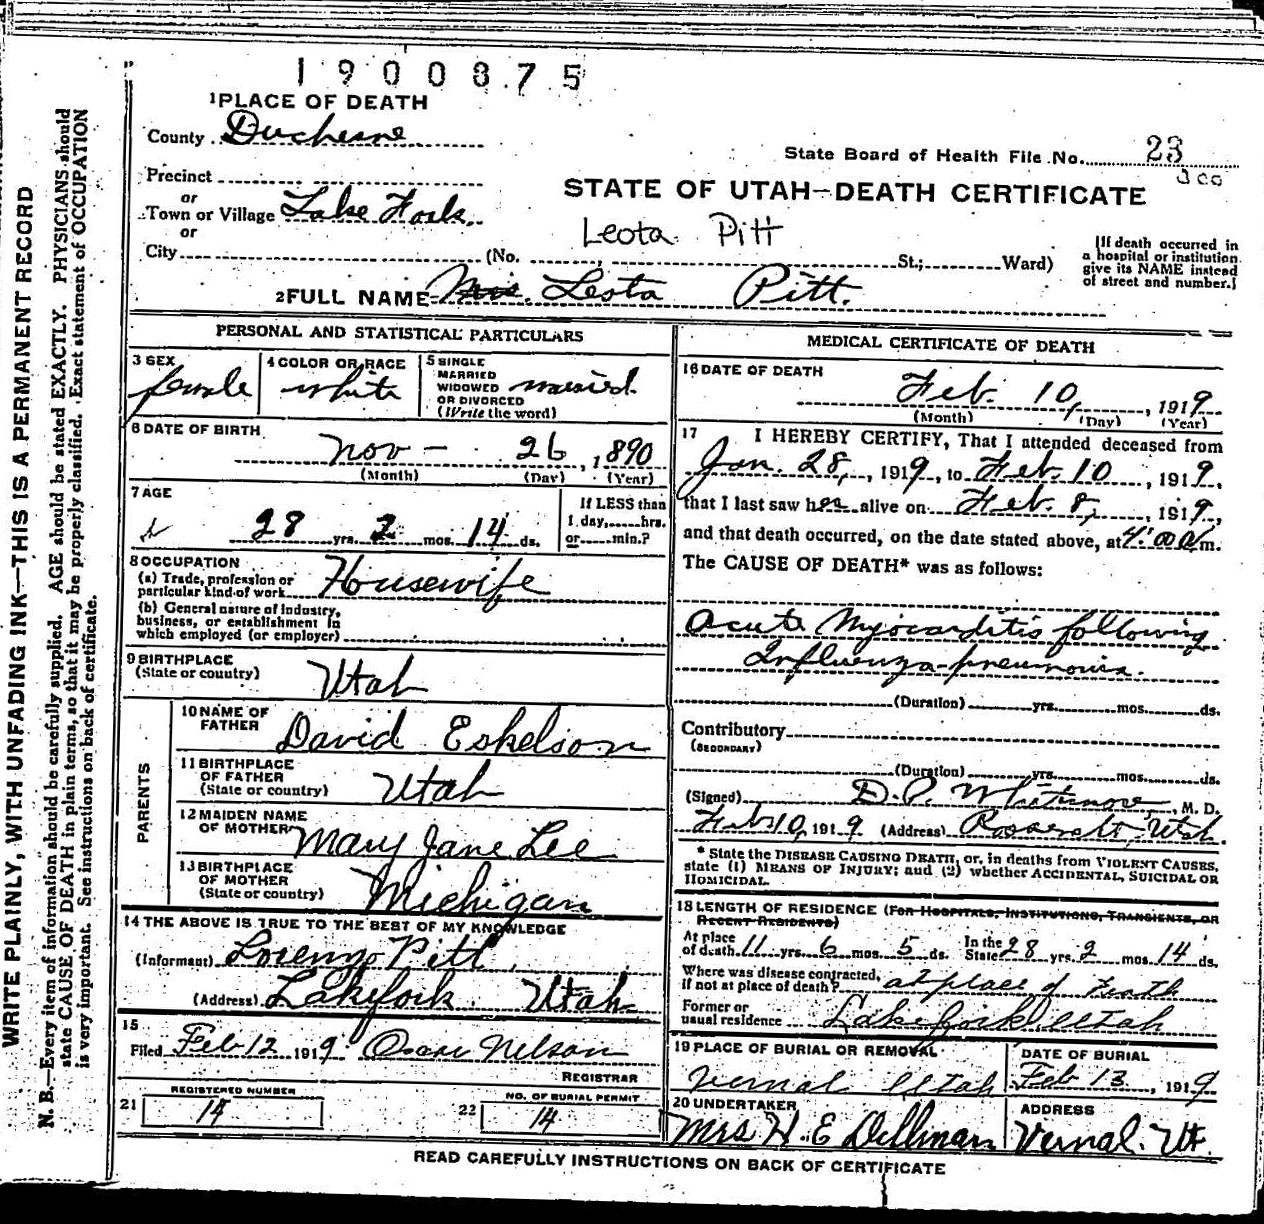 1900875
1 PLACE OF DEATH
County Duchesne
State Board of Health File No. 23
300
Precinct
or
Town or Village Lake Fork
or
City (No. St.; Ward)
STATE OF UTAH—DEATH CERTIFICATE
Leota Pitt
[If death occurred in a hospital or institution give its NAME instead of street and number.]
2 FULL NAME Mrs. Leota Pitt.
PERSONAL AND STATISTICAL PARTICULARS
3 SEX female
4 COLOR OR RACE white
5 SINGLE MARRIED WIDOWED OR DIVORCED (Write the word) married
6 DATE OF BIRTH
Nov - 26, 1890
(Month) (Day) (Year)
7 AGE
28 yrs. 2 mos. 14 ds.
If LESS than 1 day, hrs. or min.?
8 OCCUPATION
(a) Trade, profession or particular kind of work Housewife
(b) General nature of industry, business, or establishment in which employed (or employer)
9 BIRTHPLACE
(State or country) Utah
PARENTS
10 NAME OF FATHER David Eskelson
11 BIRTHPLACE OF FATHER (State or country) Utah
12 MAIDEN NAME OF MOTHER Mary Jane Lee
13 BIRTHPLACE OF MOTHER (State or country) Michigan
14 THE ABOVE IS TRUE TO THE BEST OF MY KNOWLEDGE
(Informant) Lorenzo Pitt
(Address) Lakefork Utah
15
Filed Feb 12 1919 Oscar Nelson
REGISTRAR
21 REGISTERED NUMBER 14
22 NO. OF BURIAL PERMIT 14
MEDICAL CERTIFICATE OF DEATH
16 DATE OF DEATH
Feb. 10, 1919
(Month) (Day) (Year)
17 I HEREBY CERTIFY, That I attended deceased from
Jan. 28, 1919, to Feb. 10, 1919,
that I last saw her alive on Feb. 8, 1919,
and that death occurred, on the date stated above, at 4:00 A m.
The CAUSE OF DEATH* was as follows:
Acute Myocarditis following
Influenza-pneumonia.
(Duration) yrs. mos. ds.
Contributory
(SECONDARY)
(Duration) yrs. mos. ds.
(Signed) D. P. Whitmore, M. D.
Feb 10, 1919 (Address) Roosevelt, Utah
* State the DISEASE CAUSING DEATH, or, in deaths from VIOLENT CAUSES,
state (1) MEANS OF INJURY; and (2) whether ACCIDENTAL, SUICIDAL OR
HOMICIDAL.
18 LENGTH OF RESIDENCE (FOR HOSPITALS, INSTITUTIONS, TRANSIENTS, OR
RECENT RESIDENTS)
At place of death 11 yrs. 6 mos. 5 ds. In the State 28 yrs. 2 mos. 14 ds.
Where was disease contracted, if not at place of death? at place of death
Former or usual residence Lakefork Utah
19 PLACE OF BURIAL OR REMOVAL Vernal Utah
DATE OF BURIAL Feb 13, 1919
20 UNDERTAKER Mrs H. E Dillman
ADDRESS Vernal. Ut.
READ CAREFULLY INSTRUCTIONS ON BACK OF CERTIFICATE
WRITE PLAINLY, WITH UNFADING INK—THIS IS A PERMANENT RECORD
N. B.—Every item of information should be carefully supplied. AGE should be stated EXACTLY. PHYSICIANS should
state CAUSE OF DEATH in plain terms, so that it may be properly classified. Exact statement of OCCUPATION
is very important. See instructions on back of certificate.